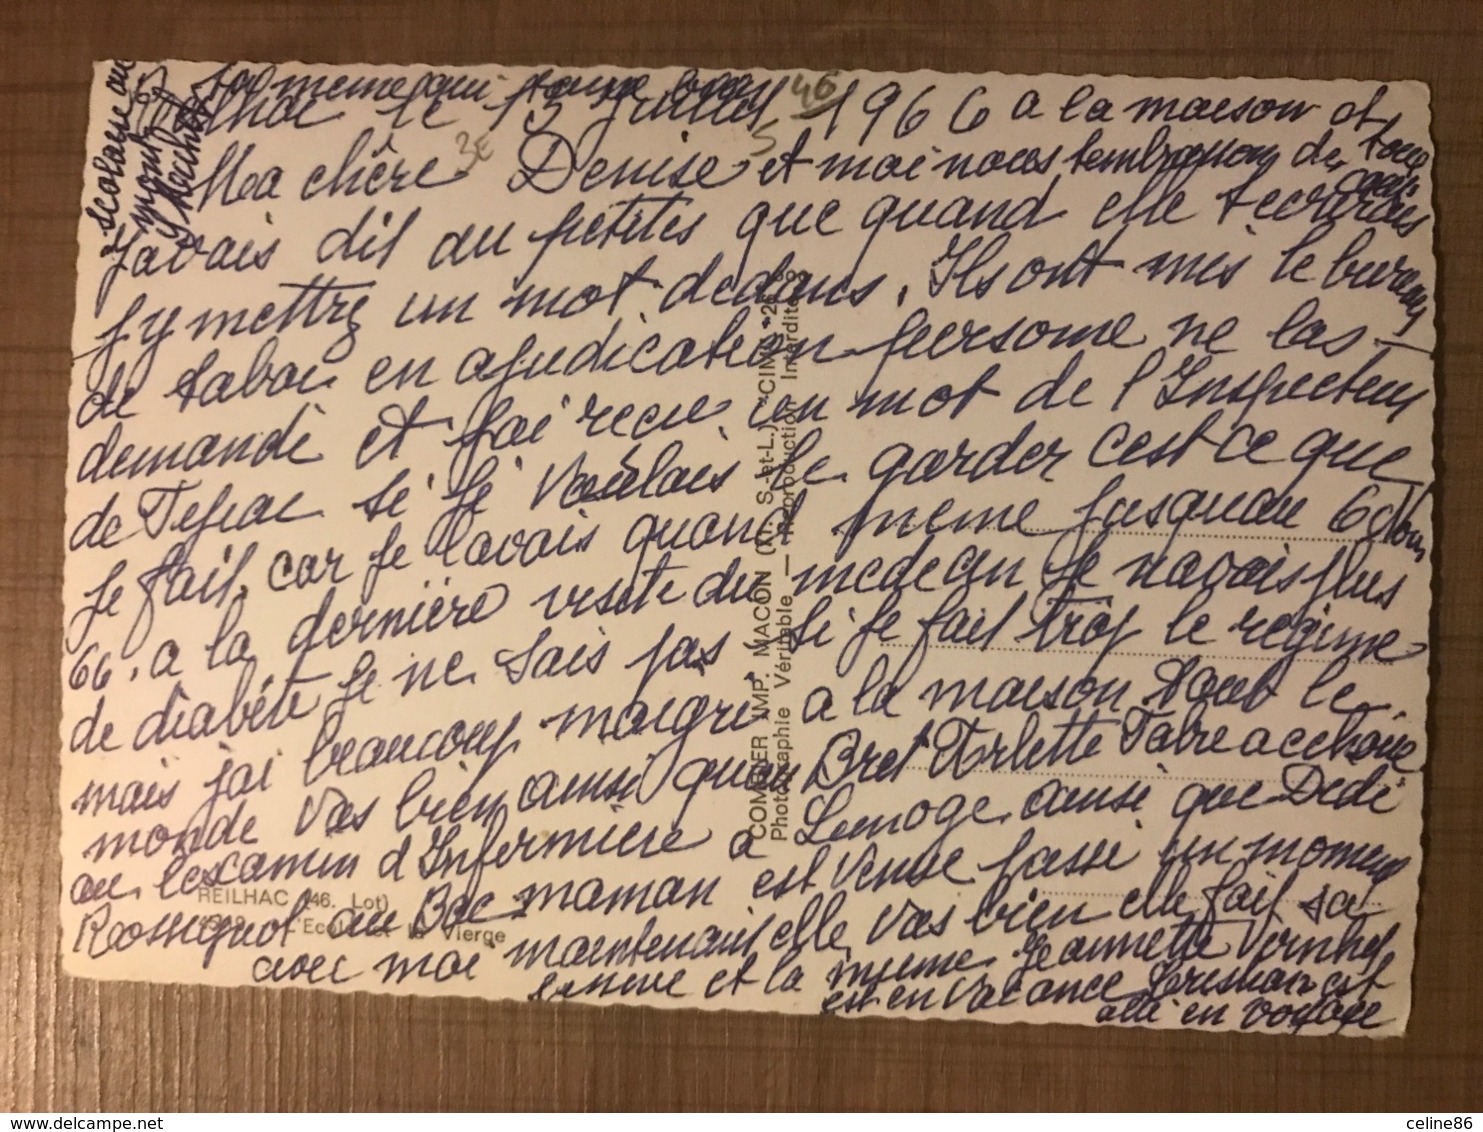 Reilhac le 15 juillet 1966 a la maison et
Ma chère Denise et moi nous tembrassons de tous
Javais dit au petites que quand elle tecrirais
jy mettre un mot dedans. Ils ont mis le bureau
de tabac en ajudication persome ne las
demandé et jai recu un mot de l'Inspecteur
de Figeac si je voulais le garder c'est ce que
je fait. car je lavais quand meme jusquau
66. a la dernière visite du medecin je navais plus
de diabète je ne sais pas si je fait trop le regime
mais jai beaucoup maigri a la maison tout le
monde vas bien ainsi quau Bret Arlette Fabre a
au lexamen d'Infermière a Limoge ainsi que Dédé
Rossignol au Bac maman est venue passé un moment
avec moi maintenant elle vas bien elle fait sa
et la mienne Jeannette Vernhet
est en vacance est
allé en voyage
scolaire au
mont
la meme qui
46
3E
5
COMBIER IMP. MACON (S.-et-L.) "CIM"
Photographie Véritable — Reproduction Interdite
REILHAC (46. Lot)
L'Ecole et la Vierge
delcampe.net
celine86